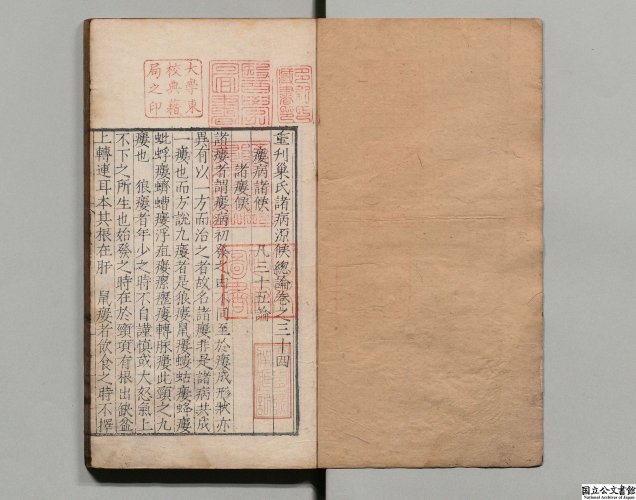 重刊巢氏諸病源候總論卷之三十四
瘻病諸候 凡三十五論
諸瘻候
諸瘻者謂瘻病初發之由不同至於瘻成形狀亦
異有以一方而治之者故名諸瘻非是諸病共成
一瘻也而方說九瘻者是狼瘻鼠瘻螻蛄瘻蜂瘻
蚍蜉瘻蠐螬瘻浮疽瘻瘰癧瘻轉脉瘻此頸之九
瘻也 狼瘻者年少之時不自謹慎或大怒氣上
不下之所生也始發之時在於頸項有根出缺盆
上轉連耳本其根在肝 鼠瘻者飲食之時不擇
大學東
校典藉
局之印
国立公文書館
National Archives of Japan